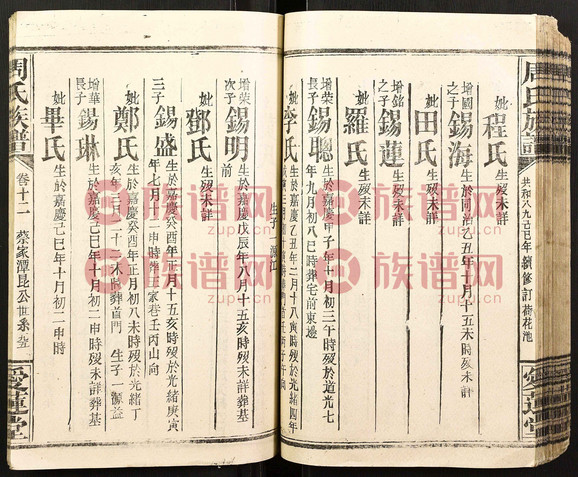 周氏族譜
共和八九己巳年
續修訂 荷花池
愛蓮堂
妣程氏 生歿未詳
增國之子 錫海 生於同治乙丑年八月十五未時歿未詳
妣田氏 生歿未詳
增銘之子 錫蓮 生歿未詳
妣羅氏 生歿未詳
增榮長子 錫聰 生於嘉慶甲子年十月初三午時歿於道光七年九月初八巳時葬宅前東邊
妣李氏 生於嘉慶乙丑年二月十八寅時歿於光緒四年
生子一
增榮次子 錫明 生於嘉慶戊辰年八月十五亥時歿未詳葬墓前
妣鄧氏 生歿未詳
三子 錫盛 生於嘉慶癸酉年正月十五亥時歿於光緒庚寅年七月十二申時葬王家巷壬丙山向
妣鄭氏 生於嘉慶癸酉年十月初八未時歿於光緒丁亥年三月二十二未時葬首門 生子一 毓益
增華長子 錫琳 生於嘉慶己巳年十月初二申時歿未詳葬墓
妣畢氏 生於嘉慶己巳年十月初二申時
周氏族譜
卷十二
蔡家潭昆公世系
愛蓮堂
族谱网
zup.cn
族谱网
zup.cn
族谱网
zup.cn